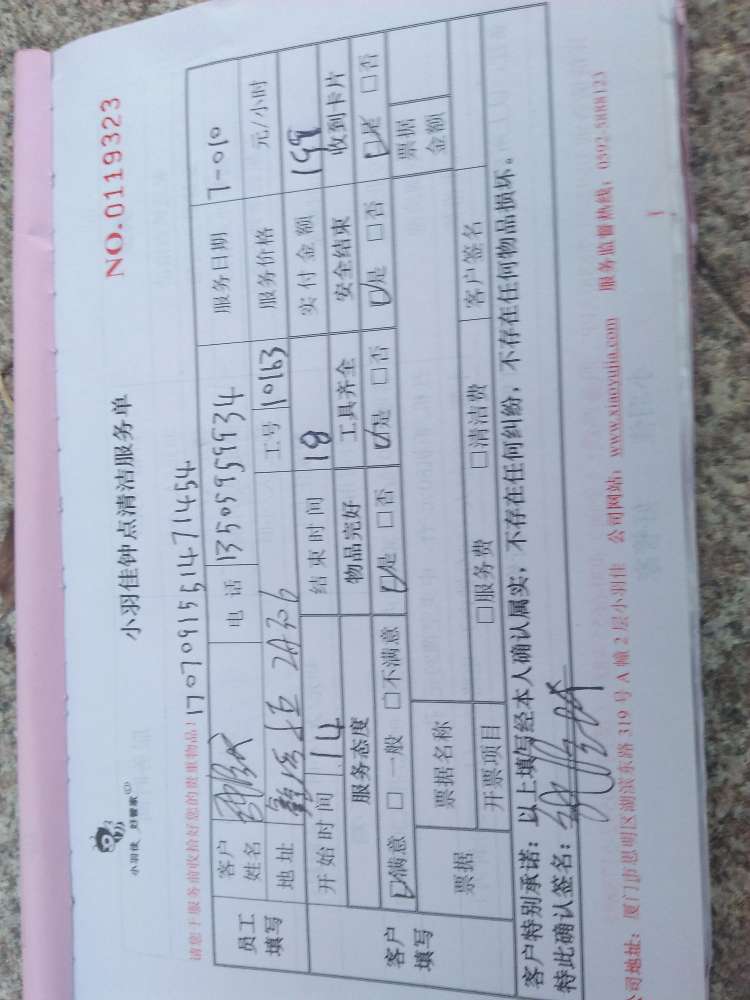 小羽佳 好管家
小羽佳钟点清洁服务单
NO.0119323
请您于服务前收拾好您的贵重物品!
170709155147 1454
员工填写 客户姓名 电话 13505959934 服务日期 7-010
地址 2A706 工号 10163 服务价格 元/小时
客户填写 开始时间 14 结束时间 18 实付金额 199
服务态度 物品完好 工具齐全 安全结束 收到卡片
☑满意 □一般 □不满意 ☑是 □否 ☑是 □否 ☑是 □否 ☑是 □否
票据 票据名称 票据金额
开票项目 □服务费 □清洁费 客户签名
客户特别承诺:以上填写经本人确认属实,不存在任何纠纷,不存在任何物品损坏。
特此确认签名:
公司地址:厦门市思明区湖滨东路 319 号 A 幢 2 层小羽佳 公司网站:www.xiaoyujia.com 服务监督热线:0592-5888123